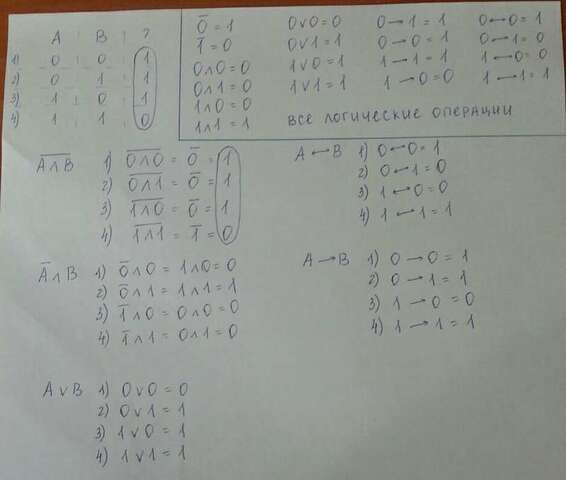 A B ?
1) 0 0 1
2) 0 1 1
3) 1 0 1
4) 1 1 0
0̅ = 1
1̅ = 0
0∧0 = 0
0∧1 = 0
1∧0 = 0
1∧1 = 1
0∨0 = 0
0∨1 = 1
1∨0 = 1
1∨1 = 1
0→1 = 1
0→0 = 1
1→1 = 1
1→0 = 0
0↔0 = 1
0↔1 = 0
1↔0 = 0
1↔1 = 1
ВСЕ ЛОГИЧЕСКИЕ ОПЕРАЦИИ
A̅∧̅B̅ 1) 0̅∧̅0̅ = 0̅ = 1
2) 0̅∧̅1̅ = 0̅ = 1
3) 1̅∧̅0̅ = 0̅ = 1
4) 1̅∧̅1̅ = 1̅ = 0
A̅∧B 1) 0̅∧0 = 1∧0 = 0
2) 0̅∧1 = 1∧1 = 1
3) 1̅∧0 = 0∧0 = 0
4) 1̅∧1 = 0∧1 = 0
A∨B 1) 0∨0 = 0
2) 0∨1 = 1
3) 1∨0 = 1
4) 1∨1 = 1
A↔B 1) 0↔0 = 1
2) 0↔1 = 0
3) 1↔0 = 0
4) 1↔1 = 1
A→B 1) 0→0 = 1
2) 0→1 = 1
3) 1→0 = 0
4) 1→1 = 1